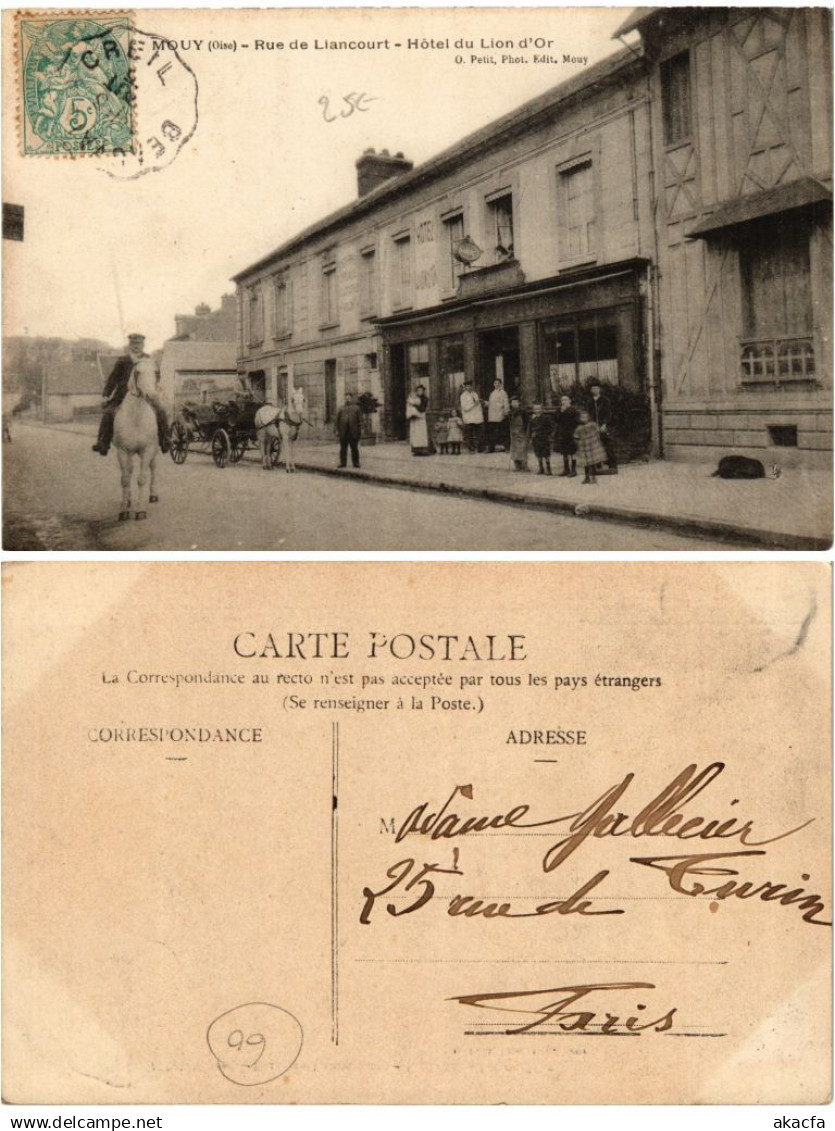 MOUY (Oise) - Rue de Liancourt - Hôtel du Lion d'Or
O. Petit, Phot. Edit. Mouy
CREIL
5c
POSTES
25€
HOTEL
CARTE POSTALE
La Correspondance au recto n'est pas acceptée par tous les pays étrangers
(Se renseigner à la Poste.)
CORRESPONDANCE
ADRESSE
Madame Gallecier
25 rue de Turin
Paris
99
akacfa